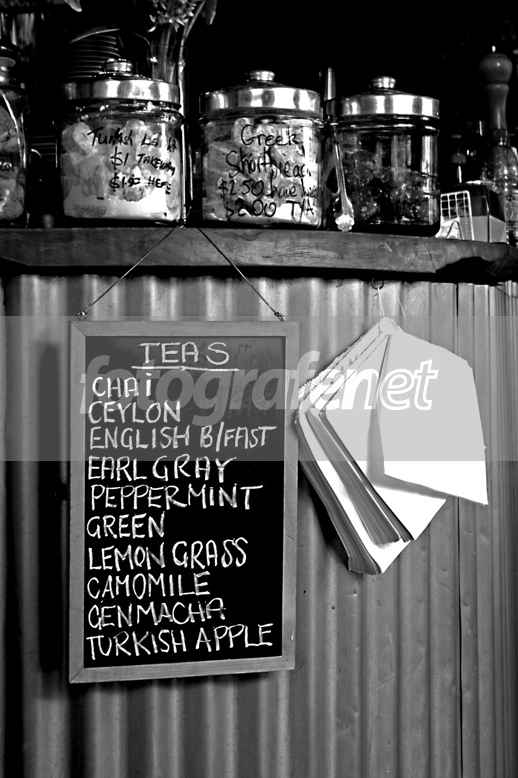 Turkish
$1 TAKEWAY
$1.50 HERE
Greek
Short
$2.50 have
$2.00 T/A
TEAS
CHAI
CEYLON
ENGLISH B/FAST
EARL GRAY
PEPPERMINT
GREEN
LEMON GRASS
CAMOMILE
GENMACHA
TURKISH APPLE
fotografe.net